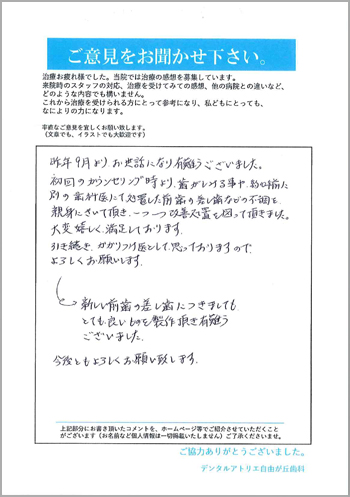 ご意見をお聞かせ下さい。
治療お疲れ様でした。当院では治療の感想を募集しています。
来院時のスタッフの対応、治療を受けてみての感想、他の病院との違いなど、
どのような内容でも構いません。
これから治療を受けられる方にとって参考になり、私どもにとっても、
なによりの力になります。
率直なご意見を宜しくお願い致します。
(文章でも、イラストでも大歓迎です)
昨年9月より、お世話になり有難うございました。
初回のカウンセリング時より、歯がしける事や、数年前に
別の歯科医にて処置した前歯の差し歯などの不調を、
親身にきいて頂き、一つ一つ改善処置を図って頂きました。
大変嬉しく、満足しております。
引き続き、かかりつけ医として、思っておりますので、
よろしくお願いします。
新しい前歯の差し歯につきましても
とても良いものを製作頂き有難う
ございました。
今後ともよろしくお願い致します。
上記部分にお書き頂いたコメントを、ホームページ等でご紹介させていただくこと
がございます(お名前など個人情報は一切掲載いたしません)ご了承くださいませ。
ご協力ありがとうございました。
デンタルアトリエ自由が丘歯科